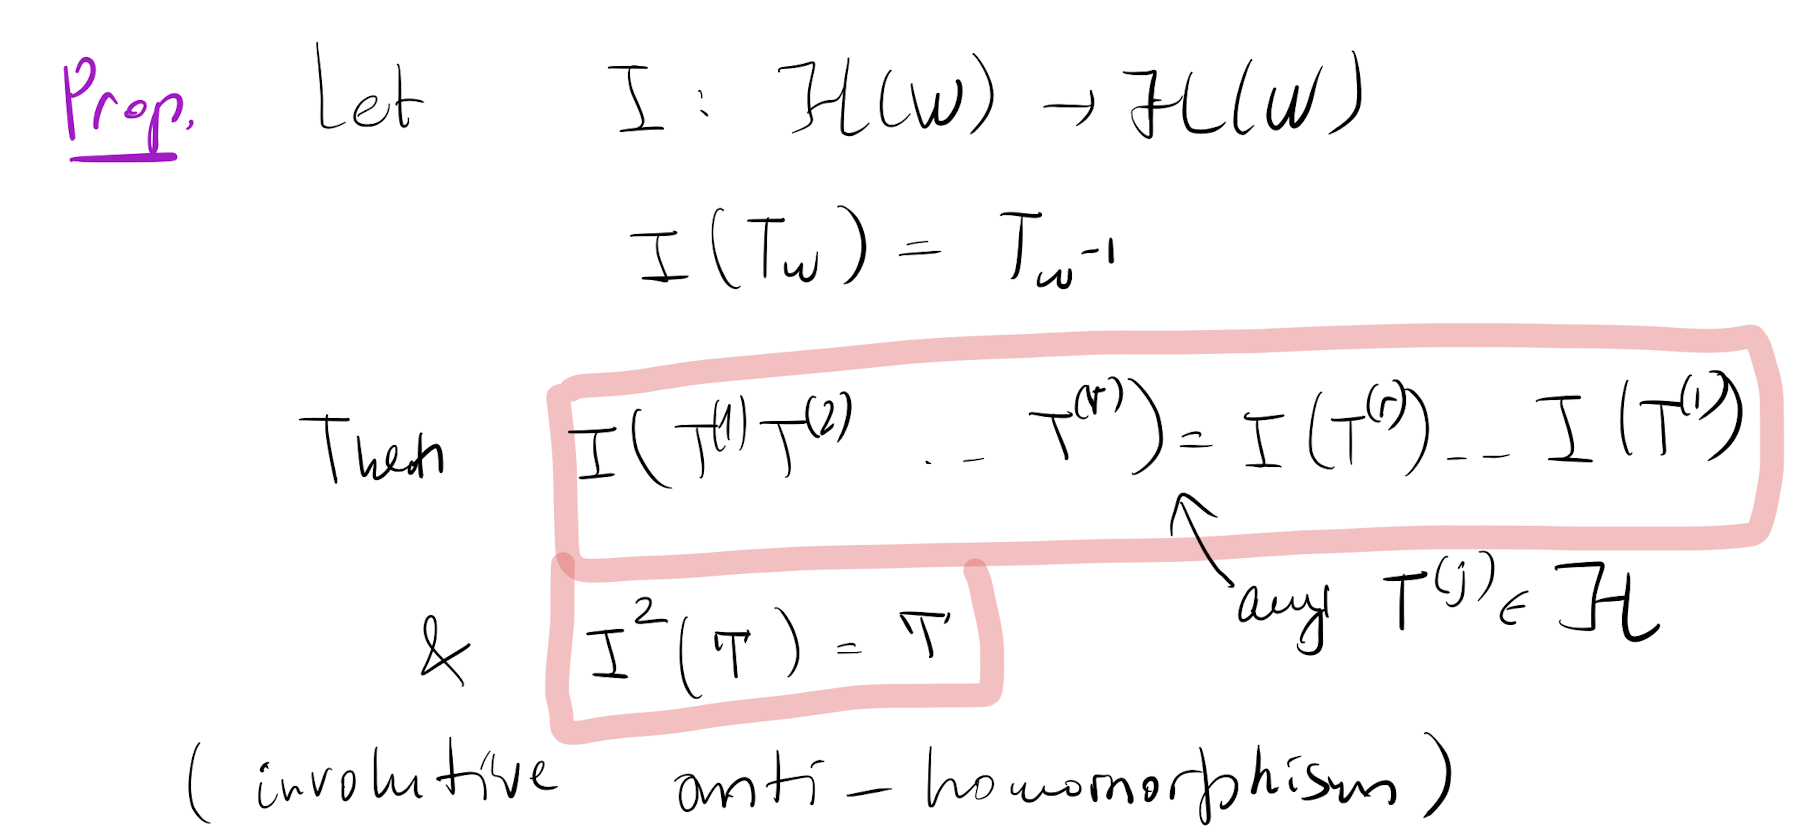 Prop. Let I : H(W) → H(W)
I(T_w) = T_{w^{-1}}
Then I(T^{(1)} T^{(2)} . -- T^{(r)}) = I(T^{(r)}) -- I(T^{(1)})
any T^{(j)} ∈ H
& I^2(T) = T
(involutive anti-homomorphism)